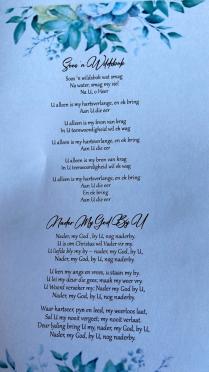 Soos 'n Wildsbok
Soos 'n wildsbok wat smag
Na water, smag my siel
Na U, o Heer
U alleen is my hartsverlange, en ek bring
Aan U die eer
U alleen is my bron van krag
In U teenwoordigheid wil ek wag
U alleen is my hartsverlange, en ek bring
Aan U die eer
U alleen is my bron van krag
In U teenwoordigheid wil ek wag
U alleen is my hartsverlange, en ek bring
Aan U die eer
En ek bring
Aan U die eer
Nader My God By U
Nader, my God, by U, nog naderby.
U is om Christus wil Vader vir my.
U liefde bly my by – nader, my God, by U,
Nader, my God, by U, nog naderby.
U ken my angs en vrees, u staan my by.
U lei my deur die gees; maak my weer vry.
U Woord verseker my: Nader my God by U,
Nader, my God, by U, nog naderby.
Waar hartseer, pyn en leed, my weerloos laat,
Sal U my nooit vergeet; my nooit verlaat.
Deur lyding bring U my, nader, my God, by U,
Nader, my God, by U, nog naderby.